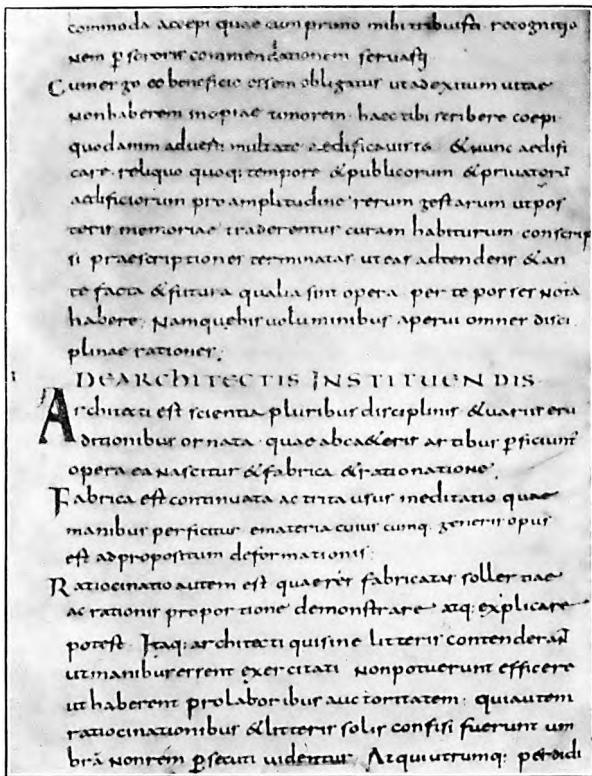 commoda accepi quae cum primo mihi tribuisti recognitio
nem p sororis commendationem servasti
Cum ergo eo beneficio essem obligatus ut ad exitum vitae
non haberem inopiae timorem haec tibi scribere coepi
quod animadverti multa te aedificavisse & nunc aedifi
care reliquo quoq: tempore & publicorum & privatorū
aedificiorum pro amplitudine rerum gestarum ut pos
teris memoriae traderentur curam habiturum conscrip
si praescriptiones terminatas ut eas adtendens & an
te facta & futura qualia sint opera per te posses nota
habere. Namque his voluminibus aperui omnes disci
plinae rationes.
I DE ARCHITECTIS INSTITUENDIS
Architecti est scientia pluribus disciplinis & variis eru
ditionibus ornata quae ab ca&eris artibus pficiunt
opera ea nascitur & fabrica & rationatione
Fabrica est continuata ac trita usus meditatio quae
manibus perficitur e materia cuius cumq. generis opus
est ad propositum deformationis:
Ratiocinatio autem est quae res fabricatas sollertiae
ac rationis proportione demonstrare atq: explicare
potest. Itaq: architecti qui sine litteris contenderant
ut manibus essent exercitati non potuerunt efficere
ut haberent pro laboribus auctoritatem: qui autem
ratiocinationibus & litteris solis confisi fuerunt um
brā non rem psecuti videntur. At qui utrumq: perdidi